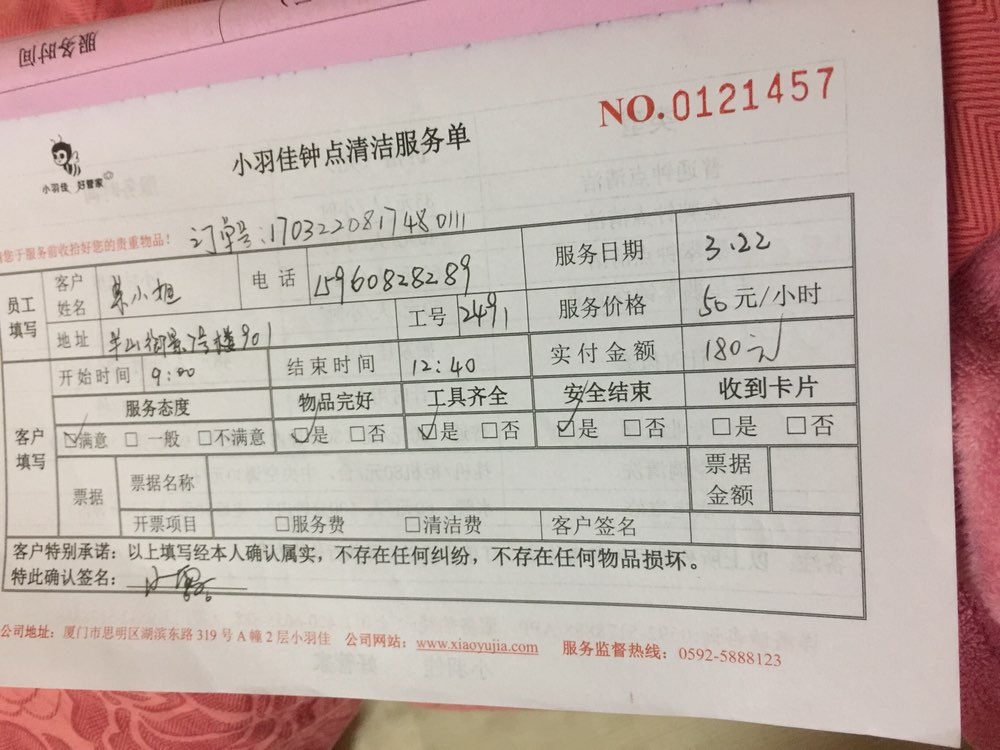 服务时间
NO.0121457
小羽佳 好管家
小羽佳钟点清洁服务单
您于服务前收拾好您的贵重物品！ 订单号:1703220817480111
员工填写 客户姓名 小姐 电话 15960828289 服务日期 3.22
地址 半山御景 号楼901 工号 2491 服务价格 50元/小时
开始时间 9:00 结束时间 12:40 实付金额 180元
客户填写 服务态度 物品完好 工具齐全 安全结束 收到卡片
☑满意 □一般 □不满意 ☑是 □否 ☑是 □否 ☑是 □否 □是 □否
票据 票据名称 票据金额
开票项目 □服务费 □清洁费 客户签名
客户特别承诺：以上填写经本人确认属实，不存在任何纠纷，不存在任何物品损坏。
特此确认签名：
公司地址：厦门市思明区湖滨东路 319 号 A 幢 2 层小羽佳 公司网站：www.xiaoyujia.com 服务监督热线：0592-5888123